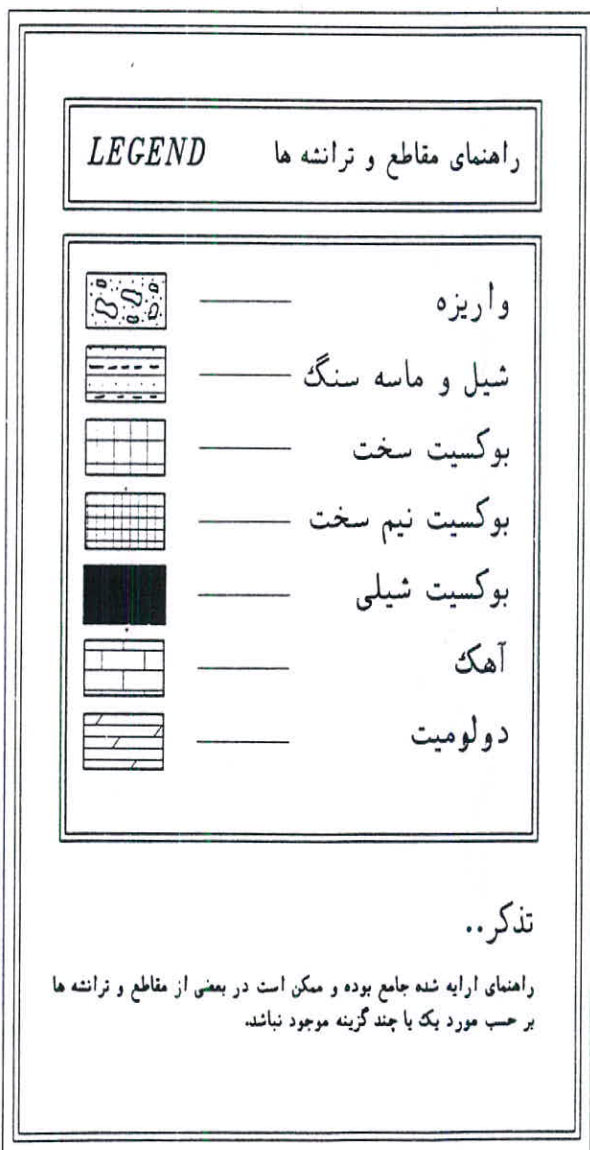 راهنمای مقاطع و ترانشه ها LEGEND
واریزه
شیل و ماسه سنگ
بوکسیت سخت
بوکسیت نیم سخت
بوکسیت شیلی
آهک
دولومیت
تذکر..
راهنمای ارایه شده جامع بوده و ممکن است در بعضی از مقاطع و ترانشه ها
بر حسب مورد یک یا چند گزینه موجود نباشد.